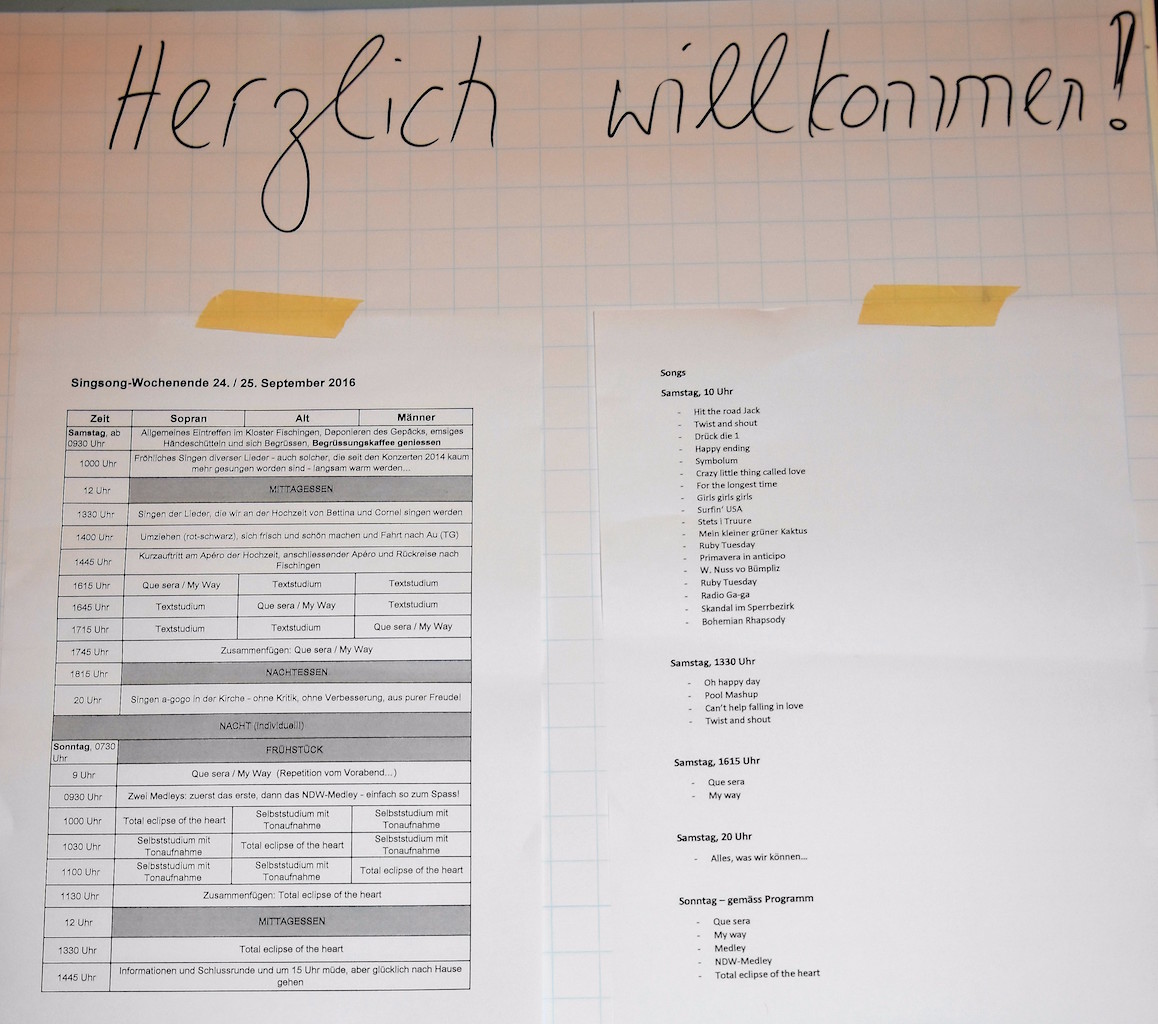 Herzlich willkommen!
Singsong-Wochenende 24. / 25. September 2016
Zeit Sopran Alt Männer
Samstag, ab 0930 Uhr Allgemeines Eintreffen im Kloster Fischingen, Deponieren des Gepäcks, emsiges
Händeschütteln und sich Begrüssen, Begrüssungskaffee geniessen
1000 Uhr Fröhliches Singen diverser Lieder - auch solcher, die seit den Konzerten 2014 kaum
mehr gesungen worden sind - langsam warm werden...
12 Uhr MITTAGESSEN
1330 Uhr Singen der Lieder, die wir an der Hochzeit von Bettina und Cornel singen werden
1400 Uhr Umziehen (rot-schwarz), sich frisch und schön machen und Fahrt nach Au (TG)
1445 Uhr Kurzauftritt am Apéro der Hochzeit, anschliessender Apéro und Rückreise nach
Fischingen
1615 Uhr Que sera / My Way Textstudium Textstudium
1645 Uhr Textstudium Que sera / My Way Textstudium
1715 Uhr Textstudium Textstudium Que sera / My Way
1745 Uhr Zusammenfügen: Que sera / My Way
1815 Uhr NACHTESSEN
20 Uhr Singen a-gogo in der Kirche - ohne Kritik, ohne Verbesserung, aus purer Freude!
NACHT (individuell!)
Sonntag, 0730 Uhr FRÜHSTÜCK
9 Uhr Que sera / My Way (Repetition vom Vorabend...)
0930 Uhr Zwei Medleys: zuerst das erste, dann das NDW-Medley - einfach so zum Spass!
1000 Uhr Total eclipse of the heart Selbststudium mit Tonaufnahme Selbststudium mit Tonaufnahme
1030 Uhr Selbststudium mit Tonaufnahme Total eclipse of the heart Selbststudium mit Tonaufnahme
1100 Uhr Selbststudium mit Tonaufnahme Selbststudium mit Tonaufnahme Total eclipse of the heart
1130 Uhr Zusammenfügen: Total eclipse of the heart
12 Uhr MITTAGESSEN
1330 Uhr Total eclipse of the heart
1445 Uhr Informationen und Schlussrunde und um 15 Uhr müde, aber glücklich nach Hause
gehen
Songs
Samstag, 10 Uhr
- Hit the road Jack
- Twist and shout
- Drück die 1
- Happy ending
- Symbolum
- Crazy little thing called love
- For the longest time
- Girls girls girls
- Surfin' USA
- Stets i Truure
- Mein kleiner grüner Kaktus
- Ruby Tuesday
- Primavera in anticipo
- W. Nuss vo Bümpliz
- Ruby Tuesday
- Radio Ga-ga
- Skandal im Sperrbezirk
- Bohemian Rhapsody
Samstag, 1330 Uhr
- Oh happy day
- Pool Mashup
- Can't help falling in love
- Twist and shout
Samstag, 1615 Uhr
- Que sera
- My way
Samstag, 20 Uhr
- Alles, was wir können...
Sonntag – gemäss Programm
- Que sera
- My way
- Medley
- NDW-Medley
- Total eclipse of the heart